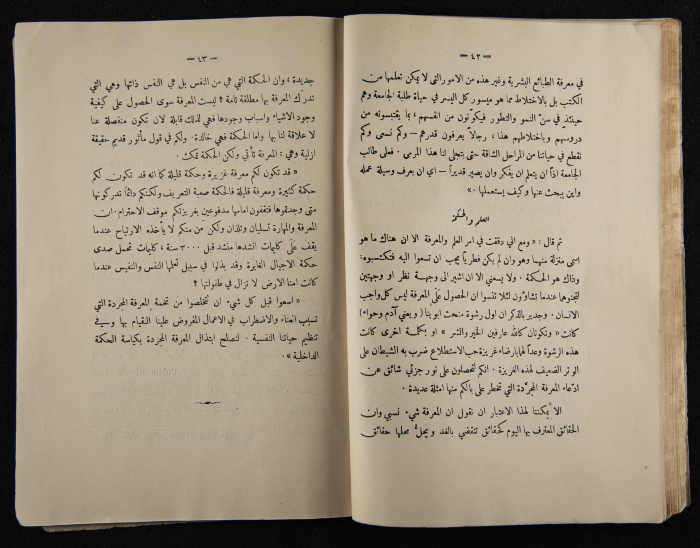 — ٤٢ —
في معرفة الطبائع البشرية وغير هذه من الامور التي لا يمكن تعلمها من
الكتب بل بالاختلاط مما هو ميسور كل اليسر في حياة طلبة الجامعة وهم
حينئذٍ في سنّ النمو والتطور فيكوّنون من انفسهم ، بما يقتبسونه من
دروسهم وباختلاطهم هذا ، رجالاً يعرفون قدرهم — وكم ننسى وكم
نقطع في حياتنا من المراحل الشاقة حتى يتجلى لنا هذا المرمى . فعلى طالب
الجامعة اذاً ان يتعلم ان يفكر وان يصير قديراً — اي ان يعرف وسيلة عمله
واين يبحث عنها وكيف يستعملها . »
العلم والحكمة
ثم قال : « ومع اني دققت في امر العلم والمعرفة الا ان هناك ما هو
اسمى منزلة منهما وهو وان لم يكن فطرياً يجب ان تسعوا اليه فتكتسبوه :
وذاك هو الحكمة . ولا يسعني الا ان اشير الى وجهة نظر او وجهتين
لتتجوها عندما تشاؤون لئلا تنسوا ان الحصول على المعرفة ليس كل واجب
الانسان . وجدير بالذكر ان اول رشوة منحت ابوينا ( ويعني آدم وحواء )
كانت « وتكونان كالله عارفين الخير والشر » او بكلمة اخرى كانت
هذه الرشوة وعداً لهما بارضاء غريزة حب الاستطلاع ضرب به الشيطان على
الوتر الضعيف لهذه الغريزة . انكم لتحصلون على نور جزئي شائق عن
ادّعاء المعرفة المجرّدة التي تخطر على بالكم منها امثلة عديدة .
الا يمكننا لهذا الاعتبار ان نقول ان المعرفة شيء نسبي وان
الحقائق المعترف بها اليوم كحقائق تنتقض بالغد ويحلّ محلها حقائق
— ٤٣ —
جديدة ، وان الحكمة التي هي من النفس بل هي النفس ذاتها وهي التي
تدرك المعرفة بها مطلقة تامة ? ليست المعرفة سوى الحصول على كيفية
وجود الاشياء واسباب وجودها فهي لذلك قابلة لان تكون منفصلة عنا
لا علاقة لنا بها واما الحكمة فهي خالدة . ولكم في قول مأثور قديم حقيقة
ازلية وهي : المعرفة تأتي ولكن الحكمة تمكث .
« قد تكون لكم معرفة غزيرة وحكمة قليلة كما انه قد تكون لكم
حكمة كثيرة ومعرفة قليلة فالحكمة صعبة التعريف ولكنكم دائماً تدركونها
متى وجدتموها فتقفون امامها مدفوعين بغريزتكم موقف الاحترام . ان
المعرفة والمهارة تسليان وتلذان ولكن من منكم لا يأخذه الارتياح عندما
يقف على كلمات انشدها منشد قبل ٣٠٠٠ سنة ، كلمات تحمل صدى
حكمة الاجيال الغابرة وقد بذلوا في سبيل تعلمها النفس والنفيس عندما
كانت امنا الارض لا تزال في طفولتها ?
« اسعوا قبل كل شيء ان تتخلصوا من تخمة المعرفة المجردة التي
تسبب العناء والاضطراب في الاعمال المفروض علينا القيام بها وسيف
تنظيم حياتنا النفسية . لنصلح ابتذال المعرفة المجردة بكياسة الحكمة
الداخلية » .